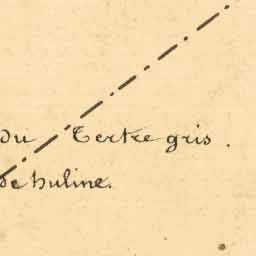 du Tertre gris.
de huline.